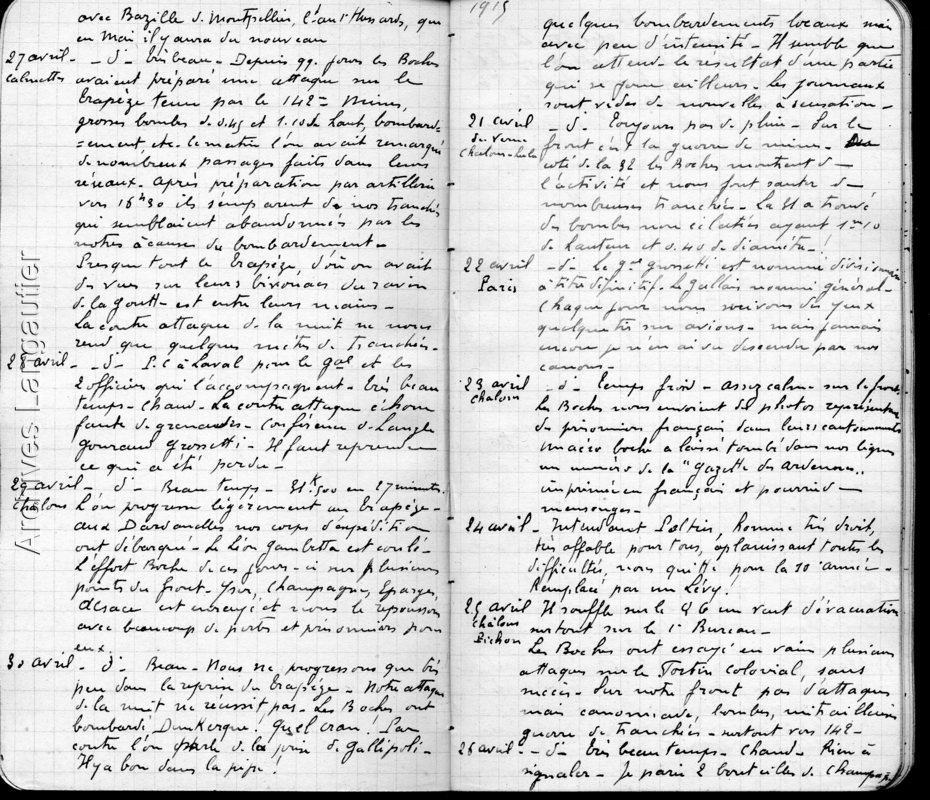 avec Bazille d. Montpellier, l'anc Hussards, que
en Mai il y aura du nouveau
27 avril - - d° - très beau - Depuis qq. jours les Boches
calmettes avaient préparé une attaque sur le
trapèze tenu par le 142e - Mines,
grosses bombes de 0.45 et 1.10 de haut, bombard-
=ement etc. le matin l'on avait remarqué
de nombreux passages faits dans leurs
réseaux. Après préparation par artillerie
vers 16h30 ils s'emparent de nos tranchées
qui semblaient abandonnées par les
notres à cause du bombardement -
Presque tout le trapèze, d'où on avait
des vues sur leurs bivouacs du ravin
de la goutte - est entre leurs mains -
La contre attaque de la nuit ne nous
rend que quelques mètres de tranchées -
28 avril - - d° - P.C à Laval pour le gal et les
2 officiers qui l'accompagnent - très beau
temps - chaud - La contre attaque échoue
faute de grenades - Conférence de Langle
gouraud grossetti - Il faut reprendre
ce qui a été perdu -
29 avril - d° - Beau temps - 31k500 en 27 minutes.
Châlons L'on progresse légèrement au trapèze -
aux Dardanelles nos corps d'expédition
ont débarqué - Le Léon Gambetta est coulé -
L'effort Boche de ces jours-ci sur plusieurs
points du front - Yser, Champagne, Eparges,
Alsace est enrayé et nous le repoussons
avec beaucoup de pertes et prisonniers pour
eux.
30 avril - d° - Beau - Nous ne progressons que très
peu dans la reprise du trapèze - Notre attaque
de la nuit ne réussit pas - Les Boches ont
bombardé Dunkerque - Quel cran ! Par
contre l'on parle de la prise de Gallipoli -
Il y a bon dans la pipe !
1915
quelques bombardements locaux mais
avec peu d'intensité - Il semble que
l'on attend le résultat d'une partie
qui se joue ailleurs - Les journaux
sont vides de nouvelles à sensation -
21 avril - d° - Toujours pas de pluie - Sur le
de Verne front c'est la guerre de mines -
Chalons coté de la 32 les Boches montrent de
l'activité et nous font sauter de
nombreuses tranchées - La 31 a trouvé
des bombes non éclatées ayant 1m10
de hauteur et 0.40 de diamètre - !
22 avril - d° - Le gal grossetti est nommé divisionnaire
Paris à titre définitif. Le gallais nommé général -
Chaque jour nous suivons des yeux
quelques tirs sur avions - mais jamais
encore je n'en ai vu descendre par nos
canons -
23 avril - d° - temps froid - assez calme - sur le front
Chalons Les Boches nous envoient des photos représentant
des prisonniers français dans leurs cantonnements
un aéro boche a laissé tombé dans nos lignes
un numéro de la "gazette des ardennes"
imprimée en français et pourrie de
mensonges -
24 avril - Intendant Peltrier, homme très droit,
très affable pour tous, aplanissant toutes les
difficultés, nous quitte pour la 10 armée -
Remplacé par un Lévy !
25 avril Il souffle sur le Q G un vent d'évacuation
Châlons surtout sur le 1er Bureau -
Pichon Les Boches ont essayé en vain plusieurs
attaques sur le Fortin colonial, sans
succès - Sur notre front pas d'attaques
mais canonnade, bombes, mitrailleuses
guerre de tranchées - surtout vers 142 -
26 avril - - d° - très beau temps - Chaud - Rien à
signaler - Je parie 2 bouteilles de champagne
Archives Langautier